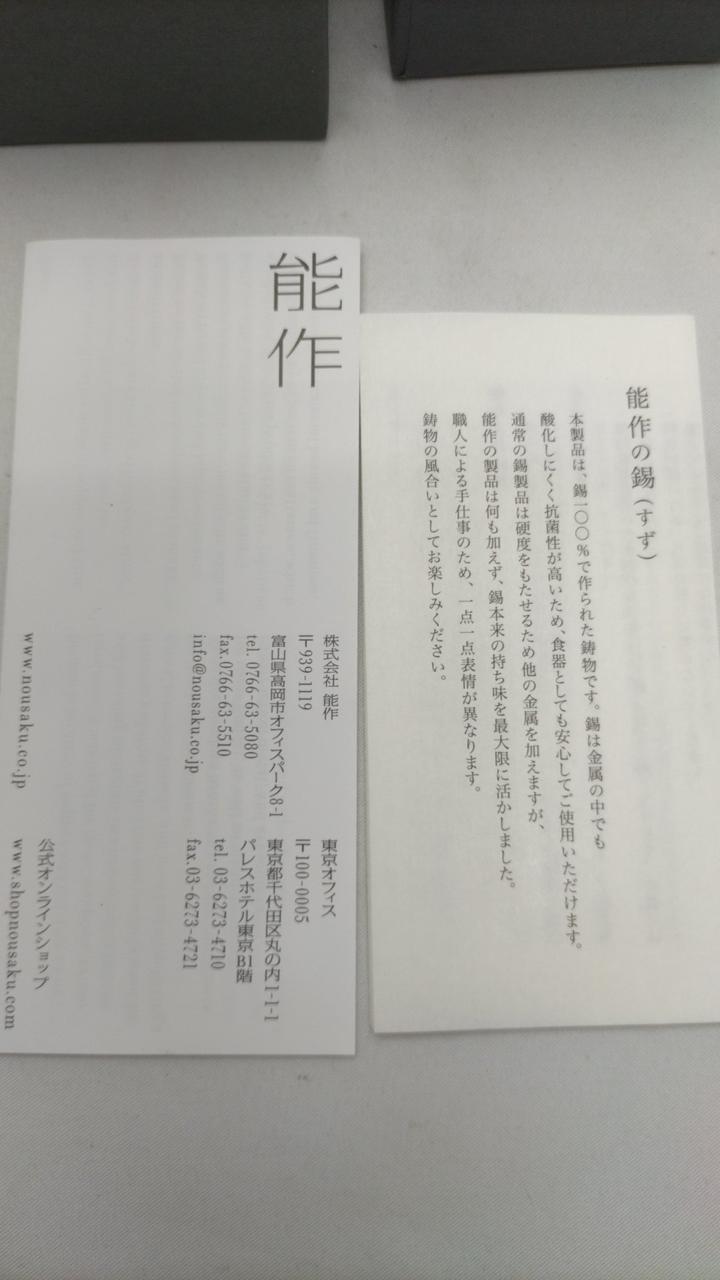 能作
株式会社 能作
〒939-1119
富山県高岡市オフィスパーク8-1
tel. 0766-63-5080
fax. 0766-63-5510
info@nousaku.co.jp
www.nousaku.co.jp
東京オフィス
〒100-0005
東京都千代田区丸の内1-1-1
パレスホテル東京B1階
tel. 03-6273-4710
fax. 03-6273-4721
公式オンラインショップ
www.shopnousaku.com
能作の錫(すず)
本製品は、錫一〇〇%で作られた鋳物です。錫は金属の中でも
酸化しにくく抗菌性が高いため、食器としても安心してご使用いただけます。
通常の錫製品は硬度をもたせるため他の金属を加えますが、
能作の製品は何も加えず、錫本来の持ち味を最大限に活かしました。
職人による手仕事のため、一点一点表情が異なります。
鋳物の風合いとしてお楽しみください。